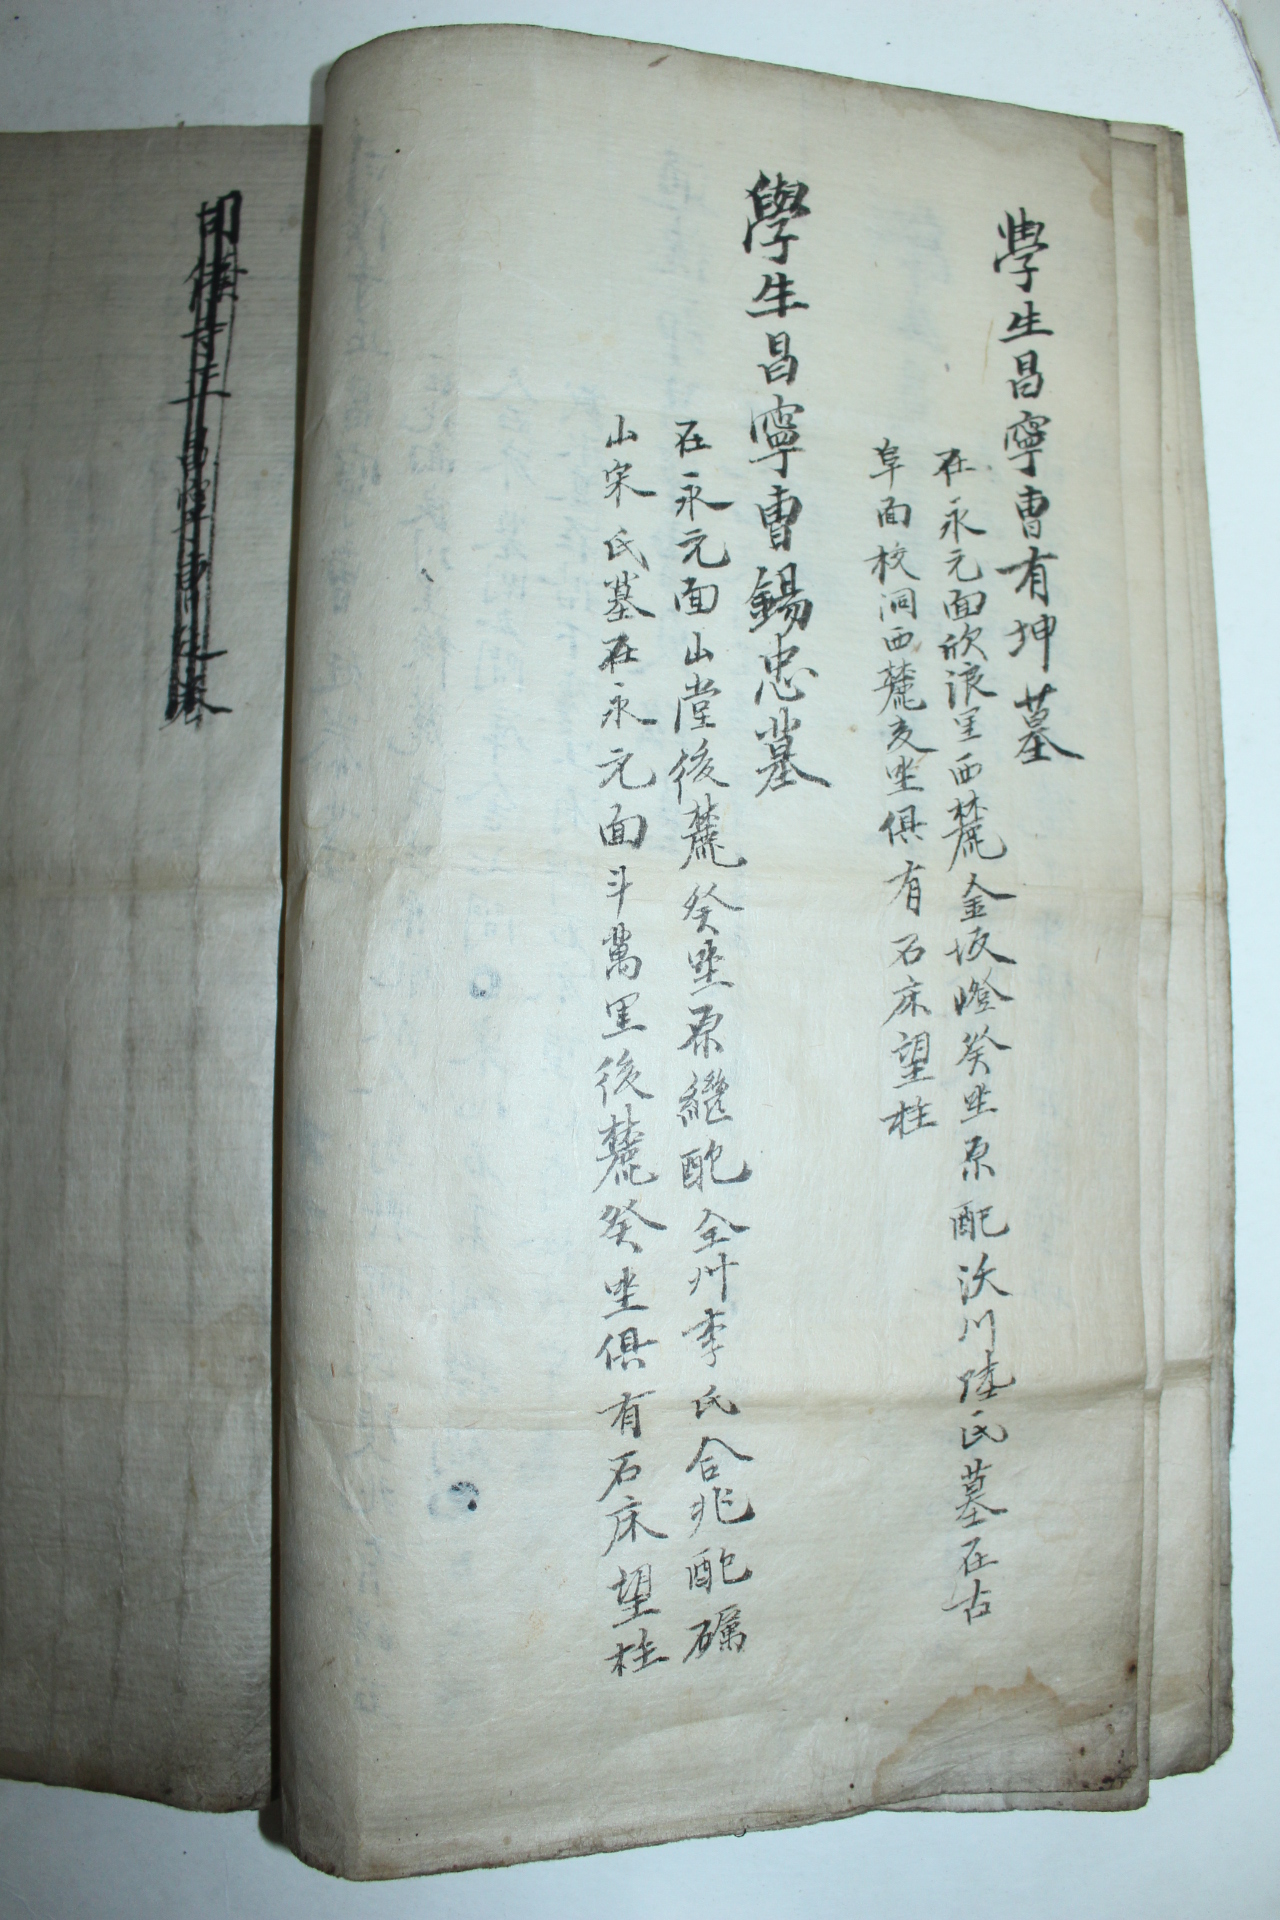 學生昌寧曺有坤墓
在永元面欣浪里西麓金坂嶝癸坐原配沃川陸氏墓在古
阜面校洞西麓亥坐俱有石床望柱
學生昌寧曺錫忠墓
在永元面山堂後麓癸坐原繼配全州李氏合兆配礪
山宋氏墓在永元面斗萬里後麓癸坐俱有石床望柱
昌寧曺